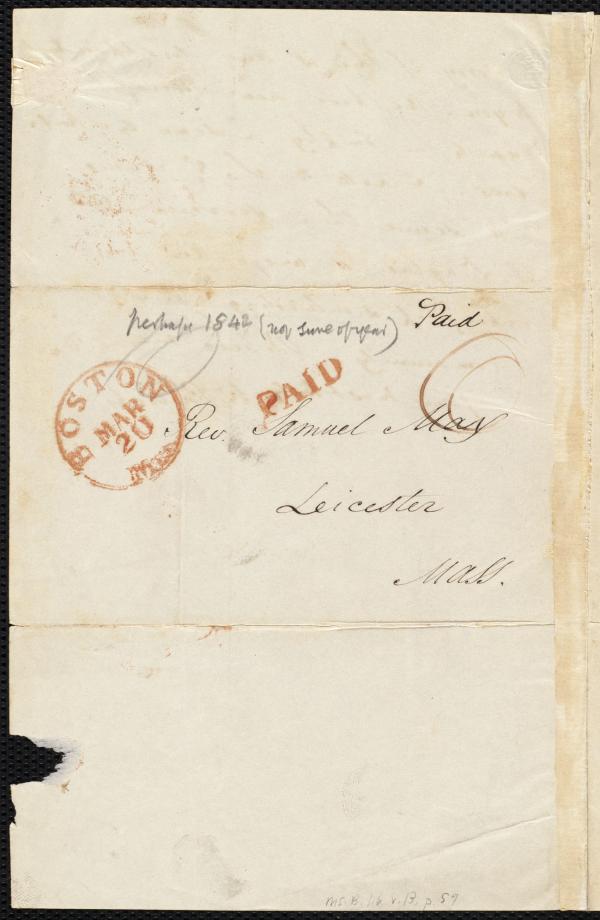 perhaps 1842 (not sure of year)
Paid
6
BOSTON
MAR
20
Mas
PAID
Rev. Samuel May
Leicester
Mass.
Ms. B. 1.6 v. 13, p. 59